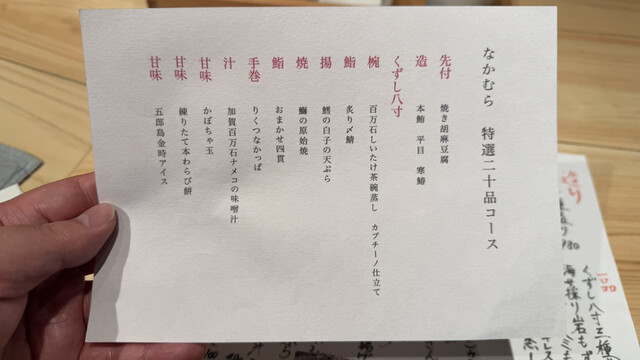 なかむら 特選二十品コース
先付 焼き胡麻豆腐
造 本鮪 平目 寒鰆
くずし八寸
椀 百万石しいたけ茶碗蒸し カプチーノ仕立て
鮨 炙り〆鯖
揚 鱈の白子の天ぷら
焼 鰤の原始焼
鮨 おまかせ四貫
手巻 りくつなかっぱ
汁 加賀百万石ナメコの味噌汁
甘味 かぼちゃ玉
甘味 練りたて本わらび餅
甘味 五郎島金時アイス
一品
くずし八寸三種